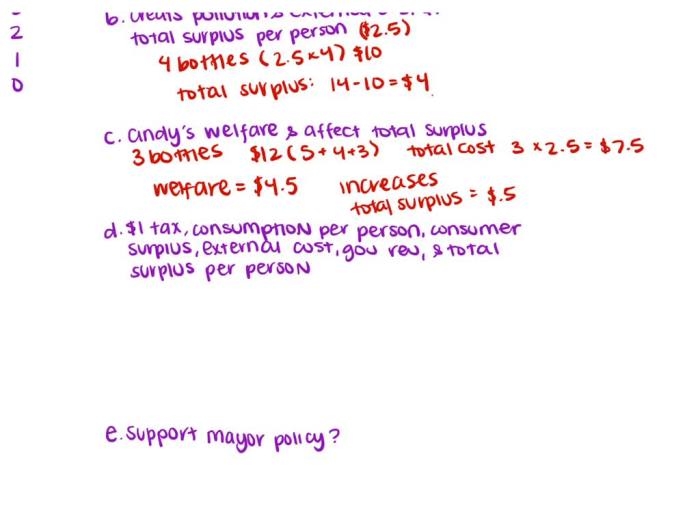 2
1
0
total surplus per person ($2.5)
4 bottles (2.5x4) $10
total surplus: 14-10=$4
c. cindy's welfare & affect total surplus
3 bottles $12 (5+4+3) total cost 3 x 2.5 = $7.5
welfare = $4.5 increases
total surplus = $.5
d. $1 tax, consumption per person, consumer
surplus, external cost, gov rev, & total
surplus per person
e. support mayor policy?